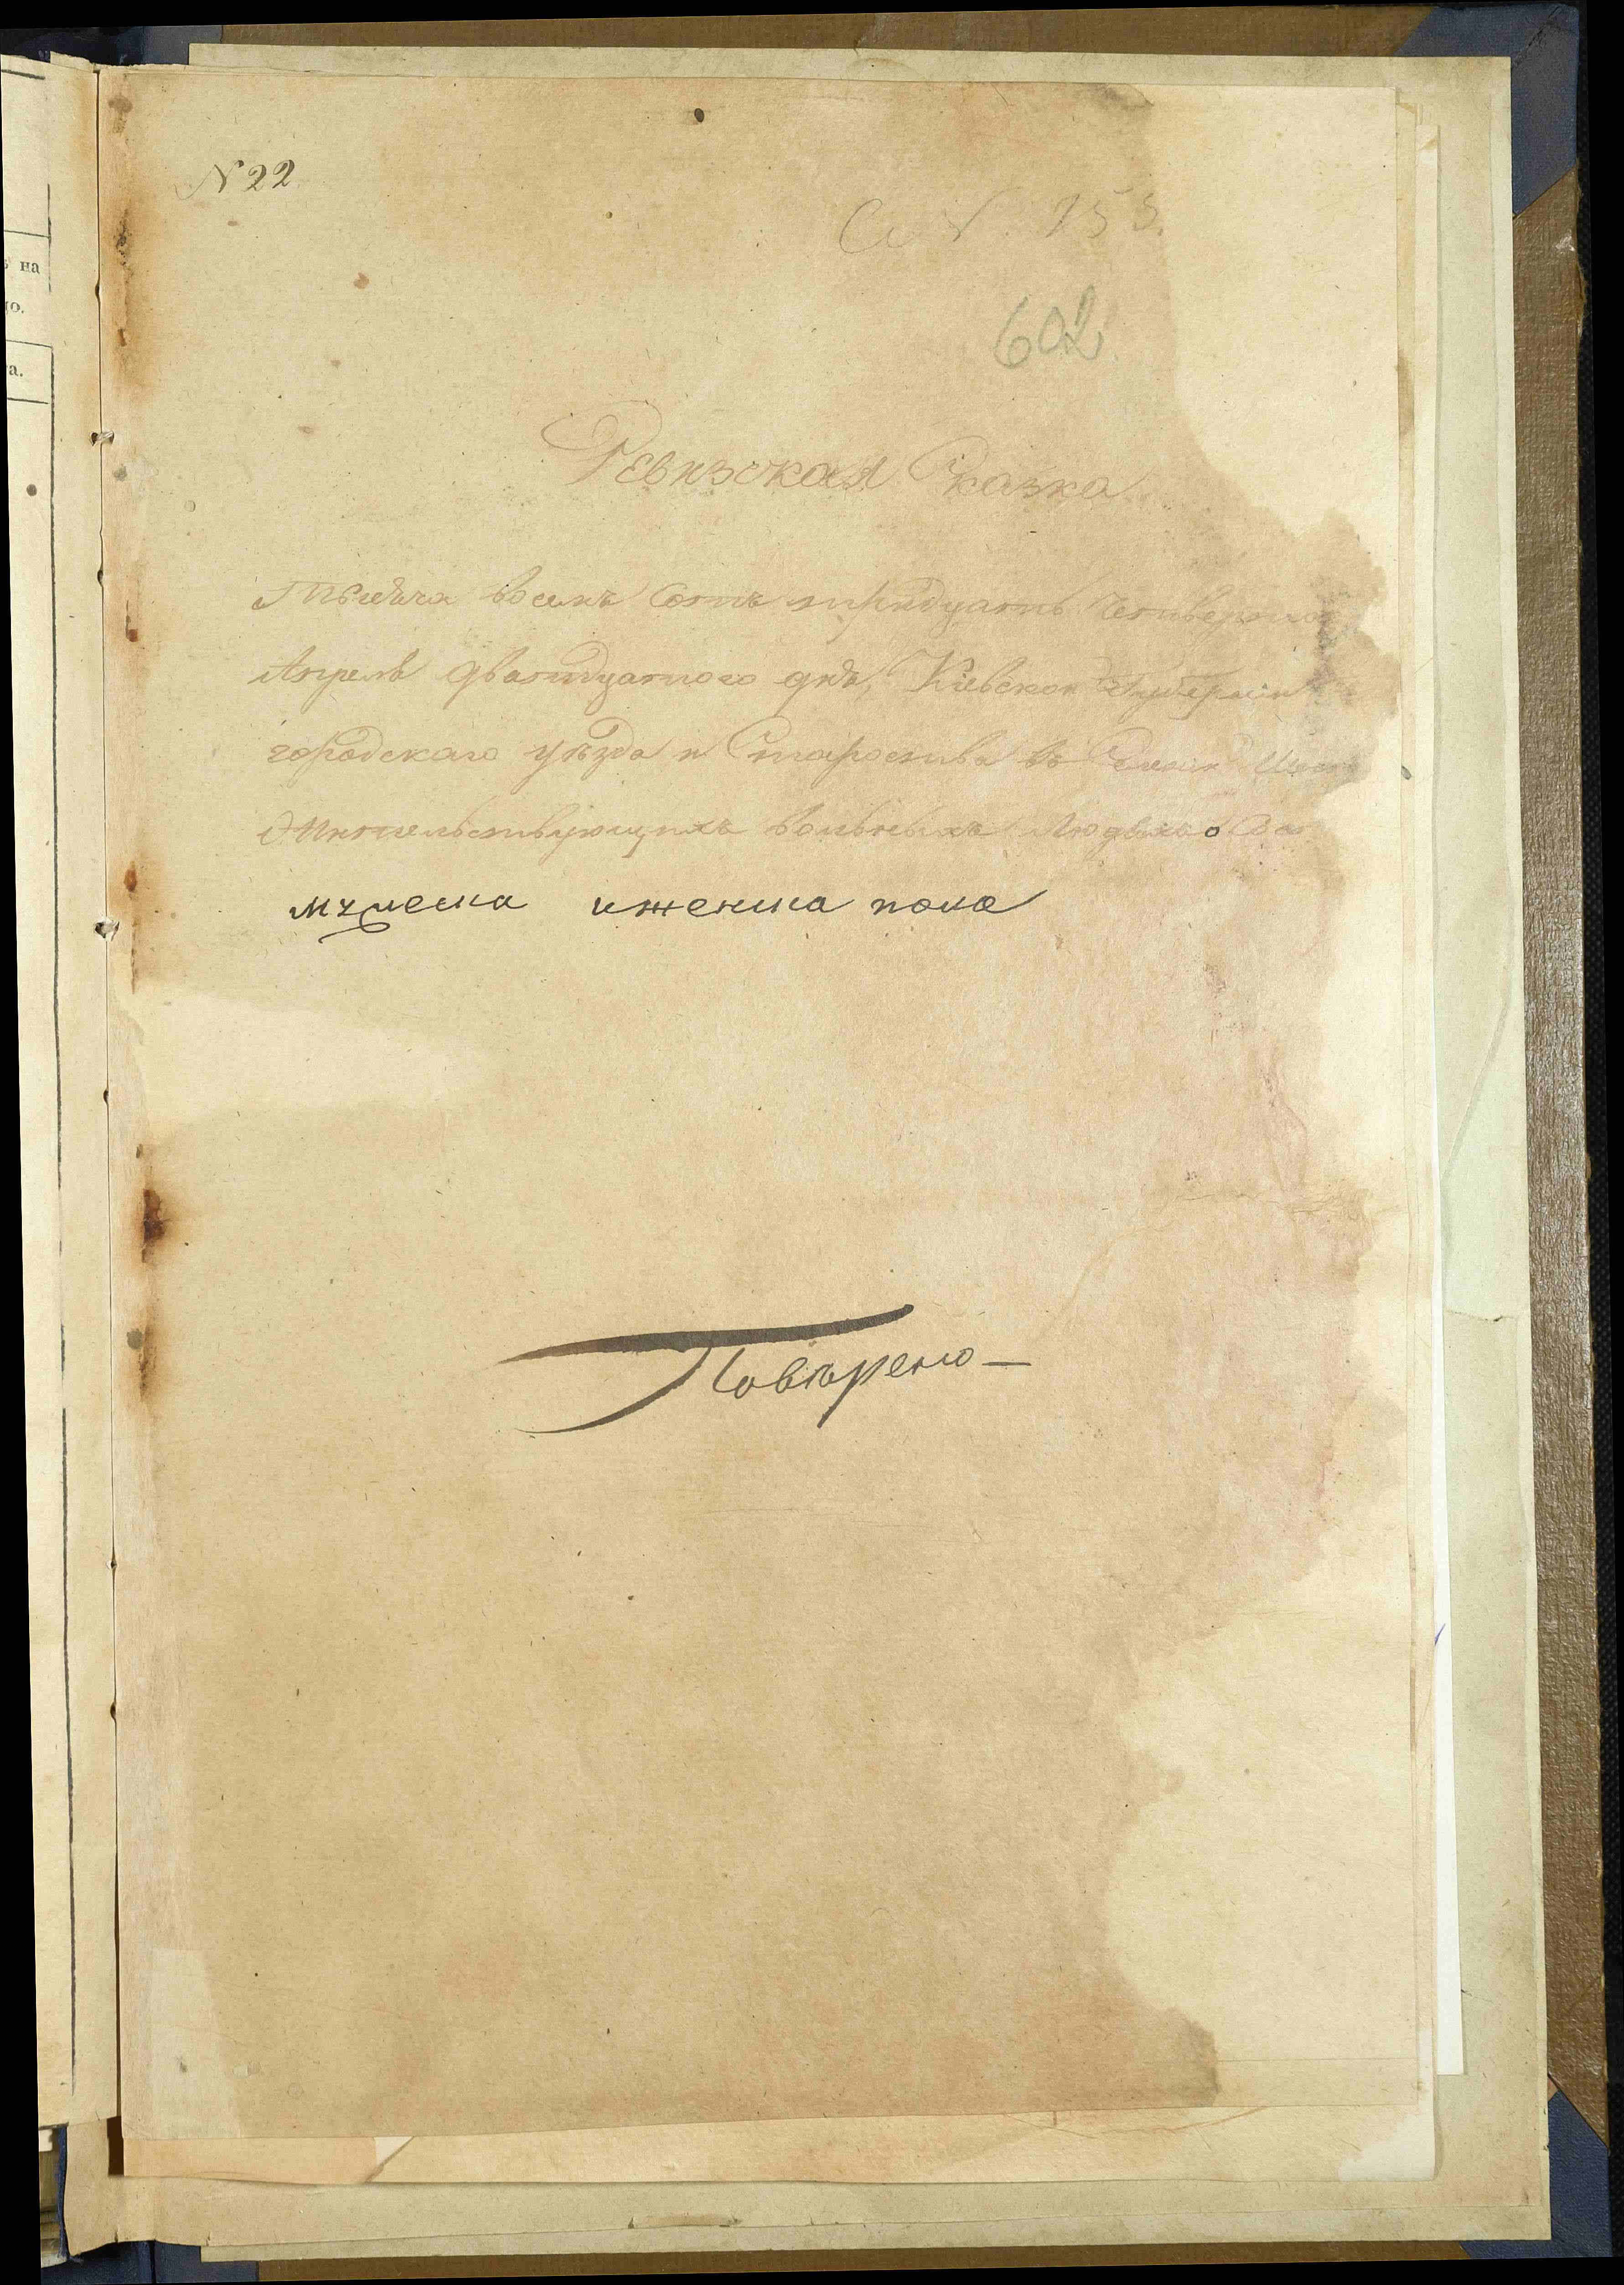 ъ на
ю.
а.
N 22
602
Ревизская Сказка
Тысяча восемь Сотъ тридцать Четвертого
Апреля двадцатого дня, Киевской Губернии
городскаго уѣзда и Староства въ Селении
Жительствующихъ вольныхъ Людяхъ о
мужеска иженска пола
Поверено —